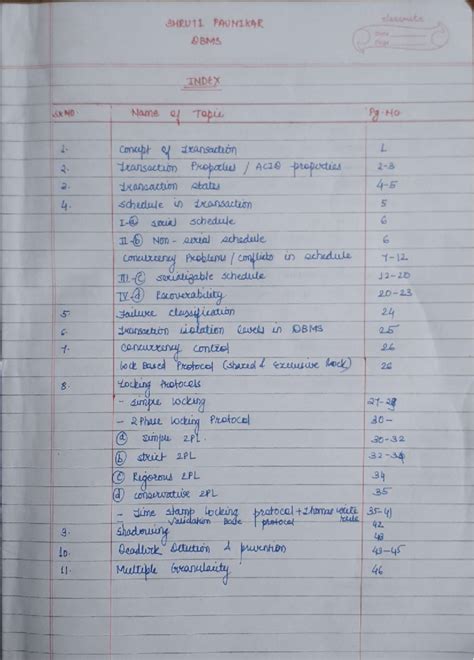 SHRUTI PAUNIKAR
DBMS
classmate
Date
Page
INDEX
SR.NO Name of Topic Pg. No
1. Concept of Transaction 1
2. Transaction Properties / ACID properties 2-3
3. Transaction states 4-5
4. Schedule in Transaction 5
I-(a) serial schedule 6
II-(b) Non-serial schedule 6
Concurrency Problems / conflicts in schedule 7-12
III-(c) serializable schedule 12-20
IV-(d) Recoverability 20-23
5 Failure classification 24
6. Transaction isolation levels in DBMS 25
7. Concurrency Control 26
Lock Based Protocol (shared & Exclusive Lock) 26
8. Locking Protocols
- Simple locking 27-29
- 2 Phase Locking Protocol 30-
(a) Simple 2PL 30-32
(b) strict 2PL 32-34
(c) Rigorous 2PL 34
(d) conservative 2PL 35
- Time stamp locking protocol + Thomas write rule 35-41
- validation base protocol 42
9. Shadowing 43
10. Deadlock Detection & prevention 43-45
11. Multiple Granularity 46